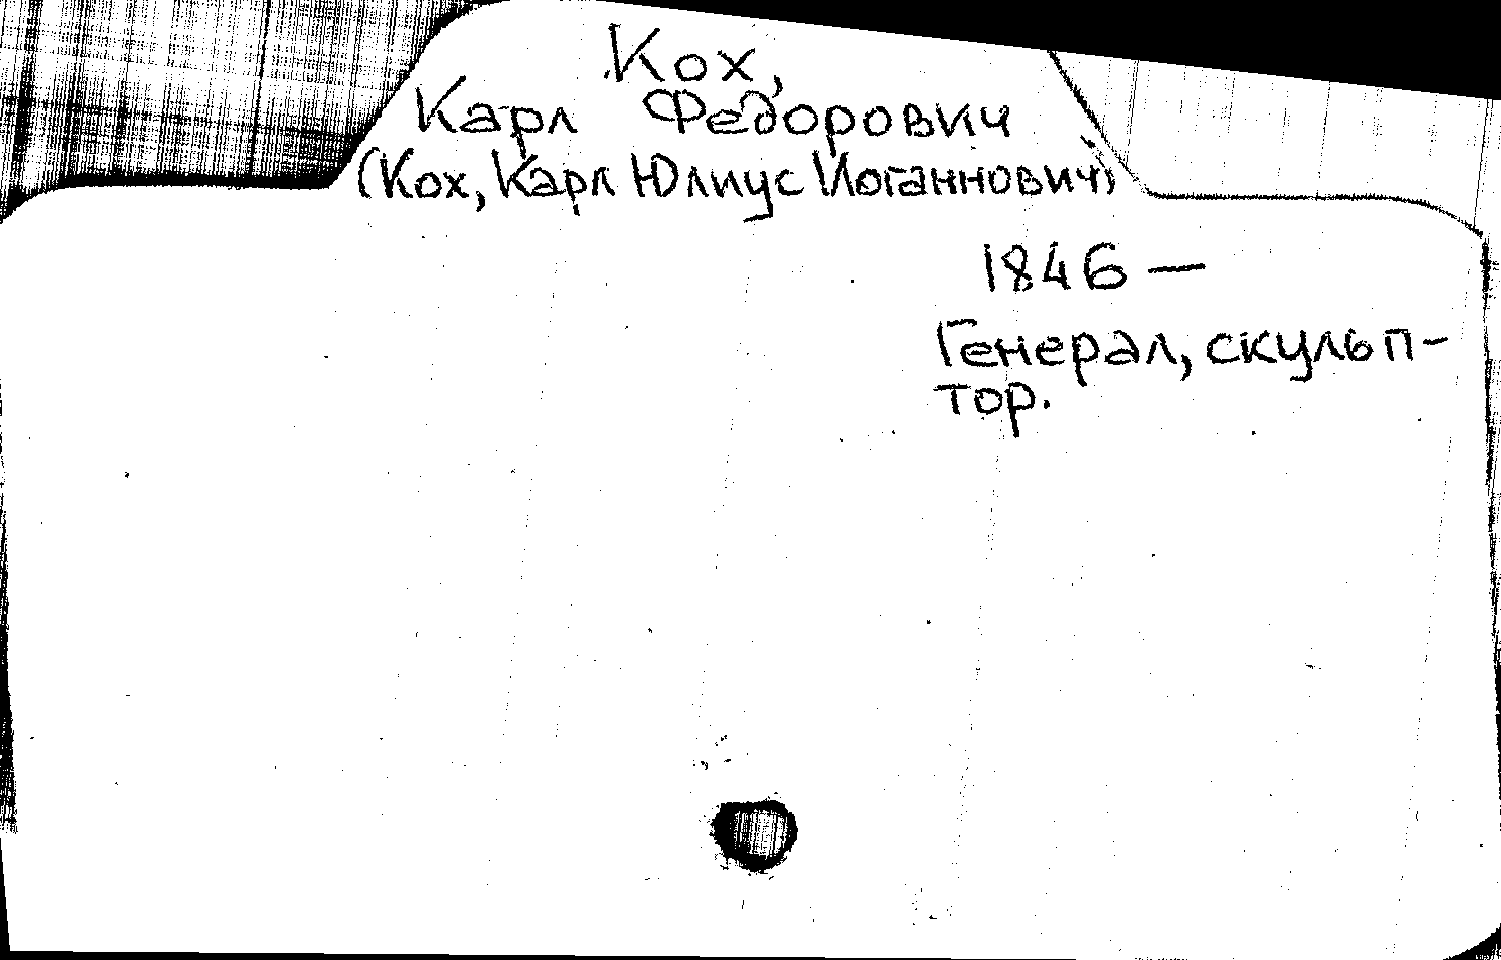 Кох,
Карл Федорович
(Кох, Карл Юлиус Иоганнович)
1846 —
Генерал, скульп-
тор.